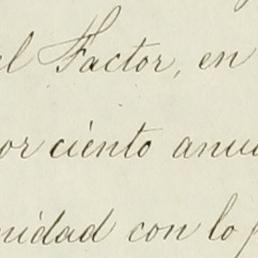 el Factor, en
or ciento anu
nidad con lo